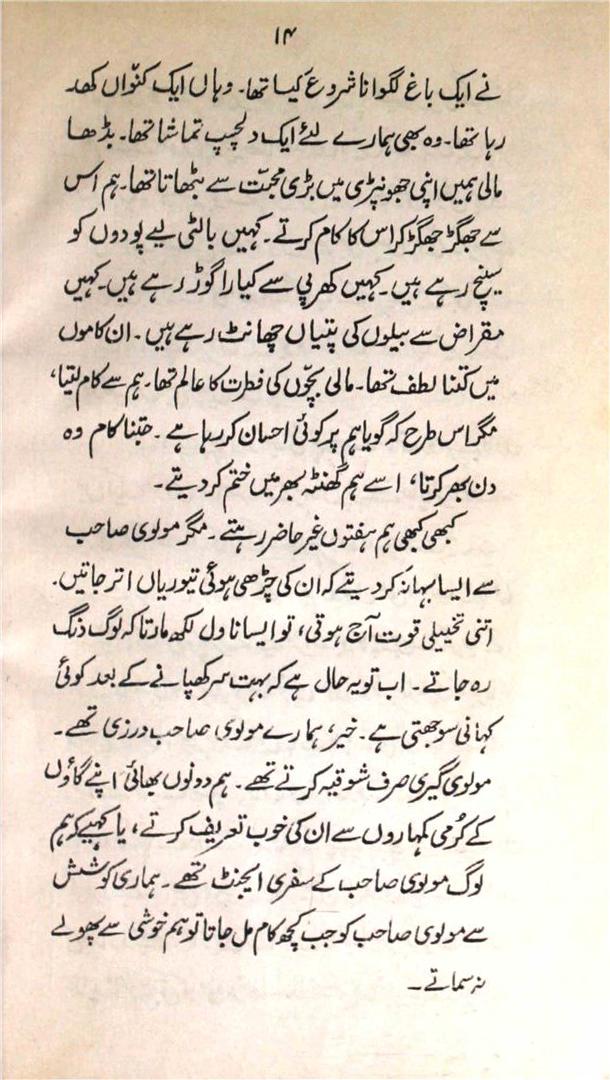 ۱۴
نے ایک باغ لگوانا شروع کیا تھا۔ وہاں ایک کنّواں کھد
رہا تھا۔ وہ بھی ہمارے لئے ایک دلچسپ تماشا تھا۔ بڈھا
مالی ہمیں اپنی جھونپڑی میں بڑی محبّت سے بٹھاتا تھا۔ ہم اس
سے جھگڑ جھگڑ کر اس کا کام کرتے۔ کہیں بالٹی لیے پودوں کو
سینچ رہے ہیں۔ کہیں کھرپی سے کیارا گوڑ رہے ہیں۔ کہیں
مقراض سے بیلوں کی پتیاں چھانٹ رہے ہیں۔ ان کاموں
میں کتنا لطف تھا۔ مالی بچّوں کی فطرت کا عالم تھا۔ ہم سے کام لیتا،
مگر اس طرح کہ گویا ہم پر کوئی احسان کر رہا ہے۔ جتنا کام وہ
دن بھر کرتا، اسے ہم گھنٹہ بھر میں ختم کر دیتے۔
کبھی کبھی ہم ہفتوں غیر حاضر رہتے۔ مگر مولوی صاحب
سے ایسا بہانہ کر دیتے کہ ان کی چڑھی ہوئی تیوریاں اتر جاتیں۔
اتنی تخییلی قوت آج ہوتی، تو ایسا ناول لکھ مارتا کہ لوگ دنگ
رہ جاتے۔ اب تو یہ حال ہے کہ بہت سر کھپانے کے بعد کوئی
کہانی سوجھتی ہے۔ خیر، ہمارے مولوی صاحب درزی تھے۔
مولوی گیری صرف شوقیہ کرتے تھے۔ ہم دونوں بھائی اپنے گاؤں
کے کُرمی کمہاروں سے ان کی خوب تعریف کرتے، یا کہیے کہ ہم
لوگ مولوی صاحب کے سفری ایجنٹ تھے۔ ہماری کوشش
سے مولوی صاحب کو جب کچھ کام مل جاتا تو ہم خوشی سے پھولے
نہ سماتے۔